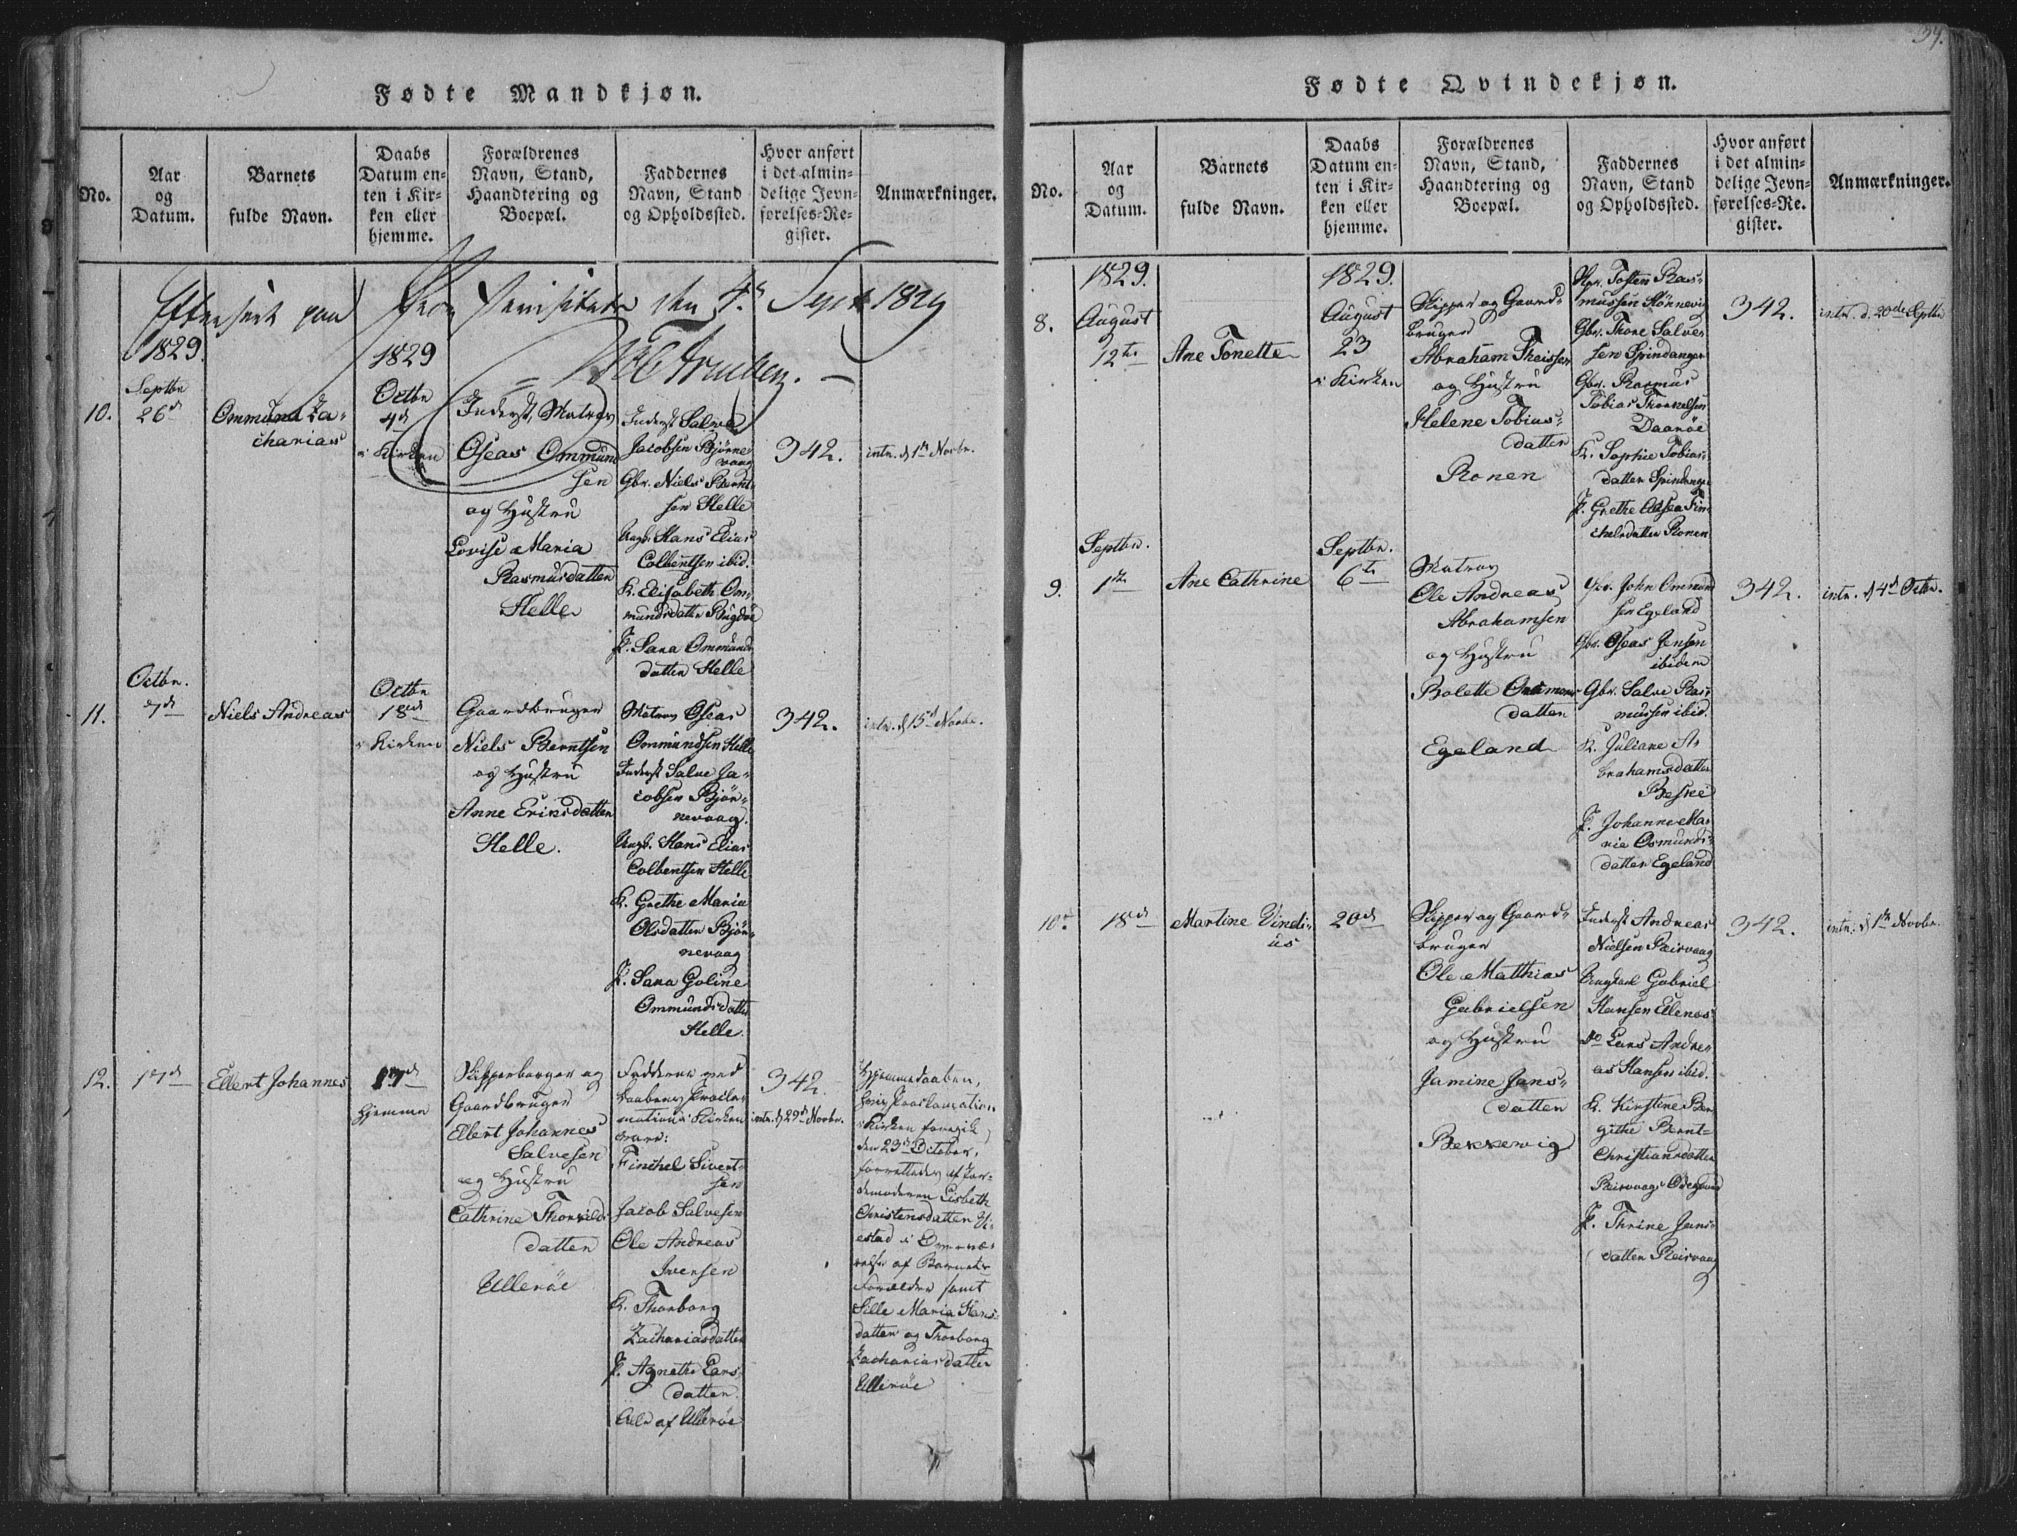 Fødte Mandkjøn.
No.
Aar
og
Datum.
Barnets
fulde Navn.
Daabs
Datum en-
ten i Kir-
ken eller
hjemme.
Forældrenes
Navn, Stand,
Haandtering og
Boepæl.
Faddernes
Navn, Stand
og Opholdssted.
Hvor anført
i det almin-
delige Jevn-
førelses-Re-
gister.
Anmærkninger.
den 4de Sept 1829
1829.
Septbr
10.
26de
Ommund Za-
charias
1829
Octbr
4de
i Kirken
Inderst, Matros
Oseas Ommund
sen
og Hustru
Lovise Maria
Rasmusdatter
Helle
Inderst Salve
Jacobsen Bjørne
vaag
Gbr. Niels Bernt-
sen Helle
Ungk. Hans Elias
Colbentsen ibid.
K. Elisabeth Om-
mundsdatter
P. Sara Ommunds
datter Helle
342.
intr. d. 1ste Novbr.
Octbr.
11.
7de
Niels Andreas
Octbr
18de
i Kirken
Gaardbruger
Niels Berntsen
og Hustru
Anne Ericsdatter
Helle.
Matros Oseas
Ommundsen Helle
Inderst Salve Ja-
cobsen Bjør-
nevaag.
Ungk. Hans Elias
Colbentsen Helle
K. Grethe Maria
Olsdatter Bjør-
nevaag
P. Sara Goline
Ommundsdatter
Helle.
342.
intr. d. 15de Novbr.
12.
17de
Ellert Johannes
17de
hjemme
Skipperborger og
Gaardbruger
Ellert Johannes
Salvesen
og Hustru
Cathrine Thorkilds-
datter
Ullerøe
Fadderne ved
Daabens Procla-
mation i Kirken
vare:
Finchel Sivert-
sen
Jacob Salvesen
Ole Andreas
Iversen
K. Thorborg
Zachariasdatter
P. Agnethe Lars-
datter.
Alle af Ullerøe
342.
intr. d. 29de Novbr.
Hjemmedaaben,
hvis Proclamation
i Kirken foregik
den 23de October,
forrettedes af Jor-
demoderen Lisbeth
Christensdatter
i Overvæ-
relse af Barnets
Forældre samt
Sille Maria Hans-
datter og Thorborg
Zachariasdatter
Ullerøe
37.
Fødte Qvindekjøn.
No.
Aar
og
Datum.
Barnets
fulde Navn.
Daabs
Datum en-
ten i Kir-
ken eller
hjemme.
Forældrenes
Navn, Stand,
Haandtering og
Boepæl.
Faddernes
Navn, Stand
og Opholdssted.
Hvor anført
i det almin-
delige Jevn-
førelses-Re-
gister.
Anmærkninger.
1829.
8.
August
12te
Ane Tonette
1829.
August
23
i Kirken
Skipper og Gaard-
bruger
Abraham Theissen
og Hustru
Helene Tobias-
datter
Ronen
Skpr. Tosten Ras-
mussen Hønnevig
Gbr. Thore Salve-
sen Spindanger
Gbr. Rasmus
Tobias Thorkelsen
Daarøe
K. Sophie Tobias-
datter Spindanger
P. Grethe Fin-
chelsdatter Ronen
342.
intr. d. 20de Septbr
Septbr.
9.
1ste
Ane Cathrine
Septbr.
6te
Matros
Ole Andreas
Abrahamsen
og Hustru
Bolette
datter
Egeland
Gbr. John Ommund
sen Egeland
Gbr. Oseas Jensen
ibidem
Gbr. Salve Ras-
mussen ibid.
K. Juliane A-
brahamsdatter
P. Johanne Ma-
ria Osmunds-
datter Egeland
342.
intr. d. 4de Octbr.
10.
18de
Martine Vindi-
us
20de
Skipper og Gaard-
bruger
Ole Matthias
Gabrielsen
og Hustru
Jamine Jans-
datter
Bekkevig
Inderst Andreas
Nielsen Reirvaag
Ungkarl Gabriel
Hansen Ellenæs
Do Lars Andre-
as Hansen ibid.
K. Kirstine Ber-
githe Bernt-
Christiansdatter
Reirvaag
P. Thrine Jans-
datter Reirvaag
342.
intr. d. 1ste Novbr.